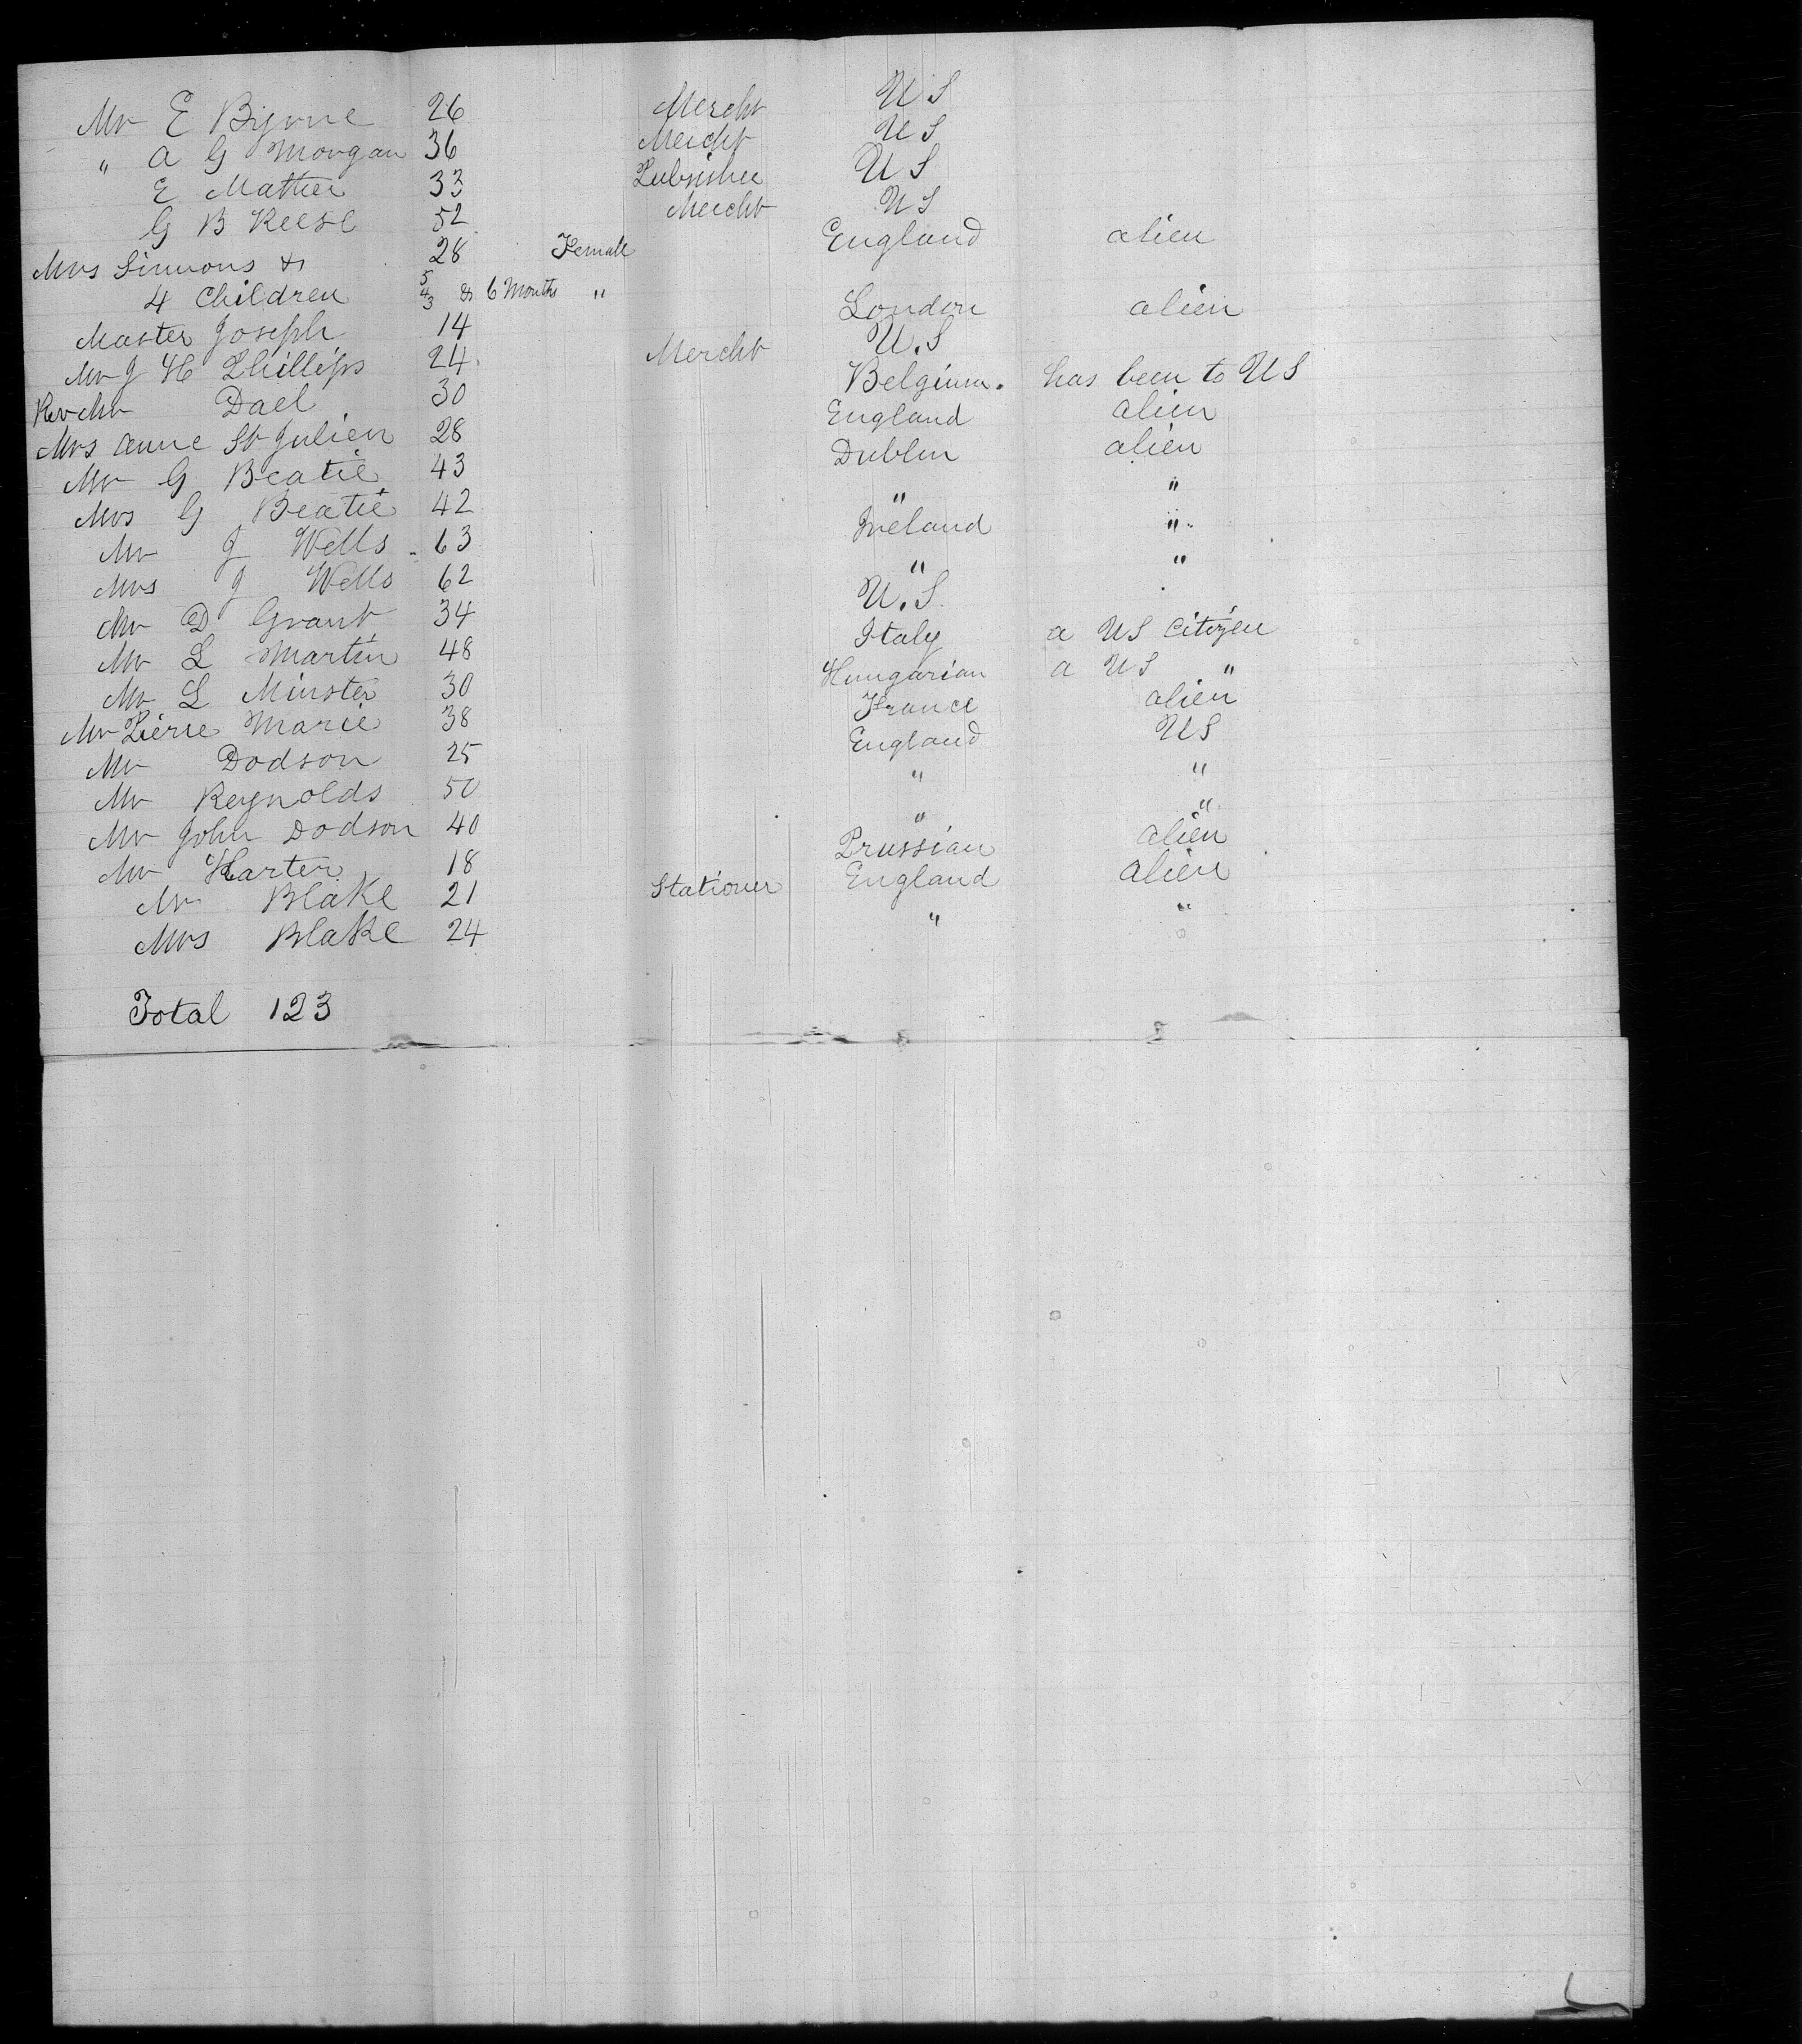 Mr E Byrne 26 Mercht U S
" A G Morgan 36 Mercht U S
E Mather 33 U S
G B Reese 52 Mercht U S
Mrs Simmons & 28 Female England alien
4 Children 5 4 3 & 6 Months "
Master Joseph 14 London alien
Mr J H Phillips 24 Mercht U.S
Rev Mr Dael 30 Belgium. has been to US
Mrs Anne St Julien 28 England alien
Mr G Beatie 43 Dublin alien
Mrs G Beatie 42 " "
Mr J Wells 63 Ireland "
Mrs J Wells 62 " "
Mr D Grant 34 U.S.
Mr L Martin 48 Italy a US Citizen
Mr L Minster 30 Hungarian a US "
Mr Pierre Marie 38 France alien
Mr Dodson 25 England US
Mr Reynolds 50 " "
Mr John Dodson 40 " "
Mr Harter 18 Prussian alien
Mr Blake 21 Stationer England alien
Mrs Blake 24 " "
Total 123